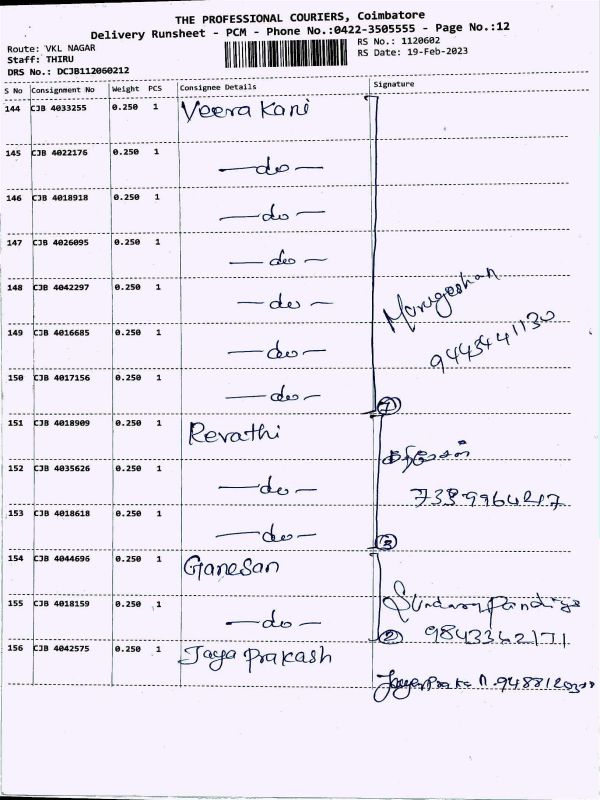 THE PROFESSIONAL COURIERS, Coimbatore
Delivery Runsheet - PCM - Phone No.:0422-3505555 - Page No.:12
Route: VKL NAGAR
RS No.: 1120602
Staff: THIRU
RS Date: 19-Feb-2023
DRS No.: DCJB112060212
S No Consignment No Weight PCS Consignee Details Signature
144 CJB 4033255 0.250 1 Veera Kani
145 CJB 4022176 0.250 1 —do—
146 CJB 4018918 0.250 1 —do—
147 CJB 4026095 0.250 1 —do—
148 CJB 4042297 0.250 1 —do—
Murugeshan
149 CJB 4016685 0.250 1 —do— 9443441130
150 CJB 4017156 0.250 1 —do—
7
151 CJB 4018909 0.250 1 Revathi
152 CJB 4035626 0.250 1 —do— 7339964217
153 CJB 4018618 0.250 1 —do— 3
154 CJB 4044696 0.250 1 Ganesan
155 CJB 4018159 0.250 1 —do—
2 9843362171
156 CJB 4042575 0.250 1 Jaya Prakash